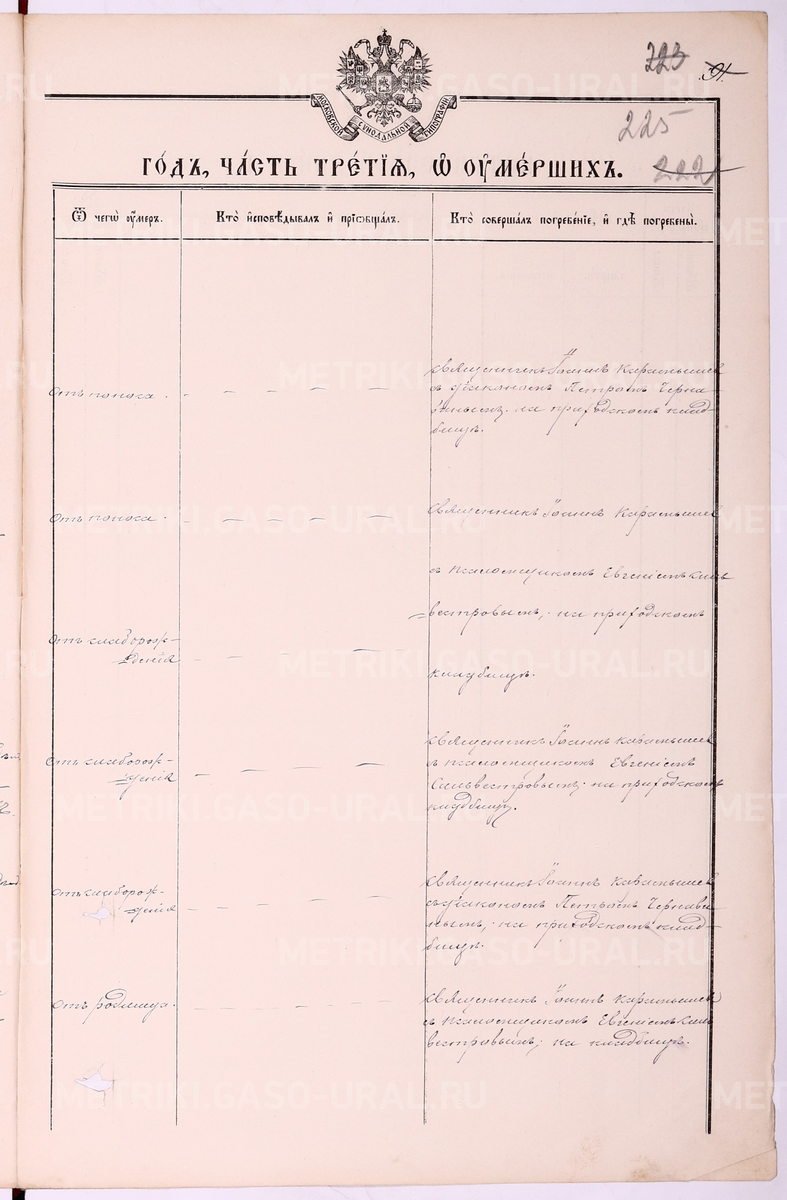 223
31.
МОСКОВСКОЙ СѴНОДАЛЬНОЙ ТИПОГРАФІИ
225
222
ГО́ДЪ, ЧА́СТЬ ТРЕ́ТІѦ, Ѡ҆ ОУ҆МЕ́РШИХЪ.
Ѿ чегѡ̀ оу҆́меръ.
Кто̀ и҆сповѣ́дывалъ и҆ прїѡбща́лъ.
Кто̀ соверша́лъ погребе́нїе, и҆ гдѣ̀ погребены̀.
Отъ поноса.
Священникъ Іоаннъ Карамышев
съ діакономъ Петромъ Черна
виныемъ; на приходскомъ клад-
бищѣ.
Отъ поноса.
Священникъ Іоаннъ Карамышев
съ псаломщикомъ Евгеніемъ Силь
Отъ слаборож-
дения
=вестровымъ; на приходскомъ
кладбищѣ.
Отъ слаборож-
=денія
Священникъ Іоаннъ Карамышев
съ псаломщикомъ Евгеніемъ
Сильвестровымъ; на приходскомъ
кладбищѣ.
Отъ слаборож-
=денія
Священникъ Іоаннъ Карамышев
съ діакономъ Петромъ Чернави
нымъ; на приходскомъ клад-
бищѣ.
Отъ родимца.
Священникъ Іоаннъ Карамышев
съ псаломщикомъ Евгеніемъ Силь
вестровымъ; на кладбищѣ.
METRIKI.GASO-URAL.RU